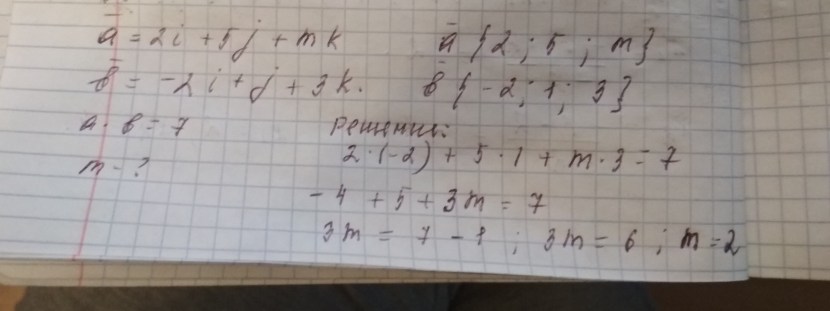 ā = 2i + 5j + mk ā {2; 5; m}
b̄ = -2i + j + 3k. b̄ {-2; 1; 3}
a · b = 7 Решение:
m - ? 2·(-2) + 5·1 + m·3 = 7
-4 + 5 + 3m = 7
3m = 7 - 1; 3m = 6; m = 2